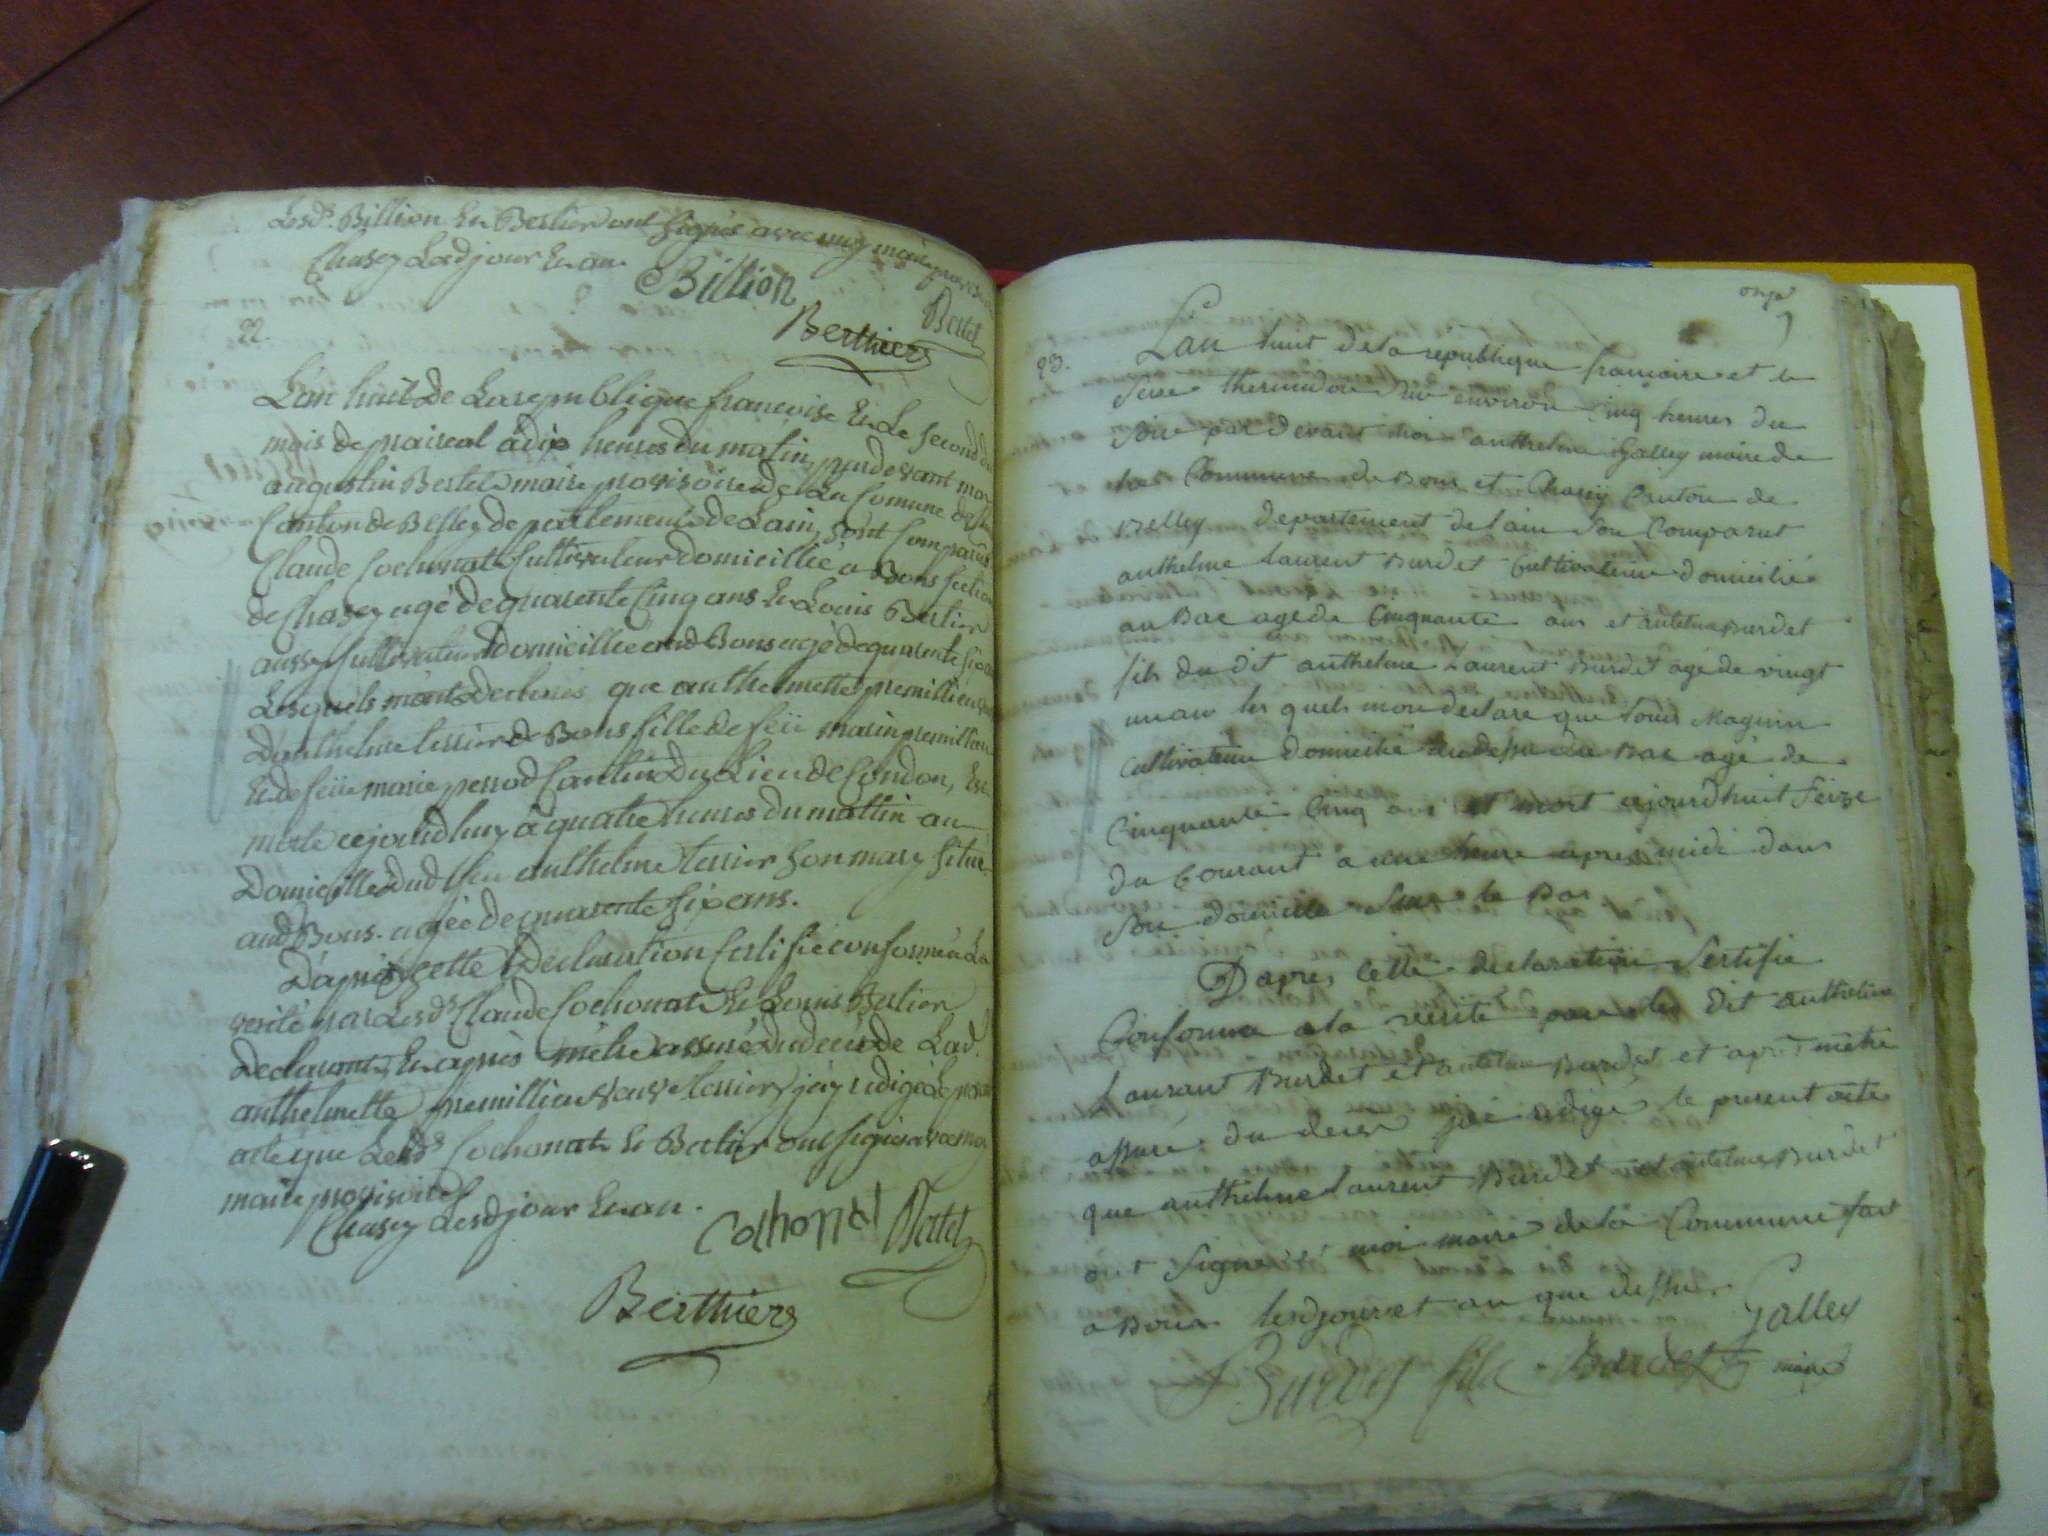 Lesds. Billion Et Bertier ont signés avec moy maire
Chasey Lesd jour Et an.
Billion
Bertet
Berthier
22.
L'an huit de La republique francoise Et Le second du
mois de praireal à dix heures du matin pardevant moy
augustin Bertet maire provisoire de La Comune de
Canton de Belley departement de Lain, sont Comparus
Claude Cochonat Cultivateur domicillié a Bons section
de Chasey agé de quarente Cinq ans Et Louis Bertier
aussy Cultivateur domicillié aud Bons agé de quarente six ans
Lesquels m'ont declarés que anthelmette premillieu
D'anthelme tessier de Bons fille de feü marin premillieu
Et de feüe marie perrod Cantin Du Lieu de Condon, Est
morte cejourdhuy à quatre heures du mattin au
Domicille dud anthelme tessier son mary situé
aud Bons. agée de quarente six ans.
D'après cette Declaration Certifié conforme à La
verité par Lesds Claude Cochonat Et Louis Bertier
Declarants, Et après m'être assuré du decés de Lad.
anthelmette premillieu tessier j'ay redigé Le present
acte que Lesds Cochonat Et Bertier ont signé avec moy
maire provisoire
Chasey Lesd jour Et an.
Cochonat
Bertet
Berthier
onze
23.
L'an huit de la republique francaise et le
seise thermidor environ Cinq heures du
Soir par devant moi anthelme Galley maire de
la Commune de Bons et Chasey Canton de
Belley departement de lain Son Comparut
anthelme laurent Burdet Cultivateur domicilié
au Bac agé de Cinquante ans et antelme Burdet
fils du dit anthelme Laurent Burdet agé de vingt
un an les quels mon declare que Louis Magnin
Cultivateur domicilié au Bac agé de
Cinquante Cinq ans est mort cejourdhuit seize
du Courant a une heure apres midi dans
Son domicille Sur le Bac
D'apres cette declaration Sertifie
Conforme a la verité par les dit anthelme
Laurant Burdet et antelme Burdet et apres m'etre
assuré du deces j'ai redigé le present acte
que anthelme laurent Burdet et antelme Burdet
ont Signé moi maire de la Commune fait
a Bons lesdjour et an que dessus.
Galley
maire
Burdet fils
Burdet